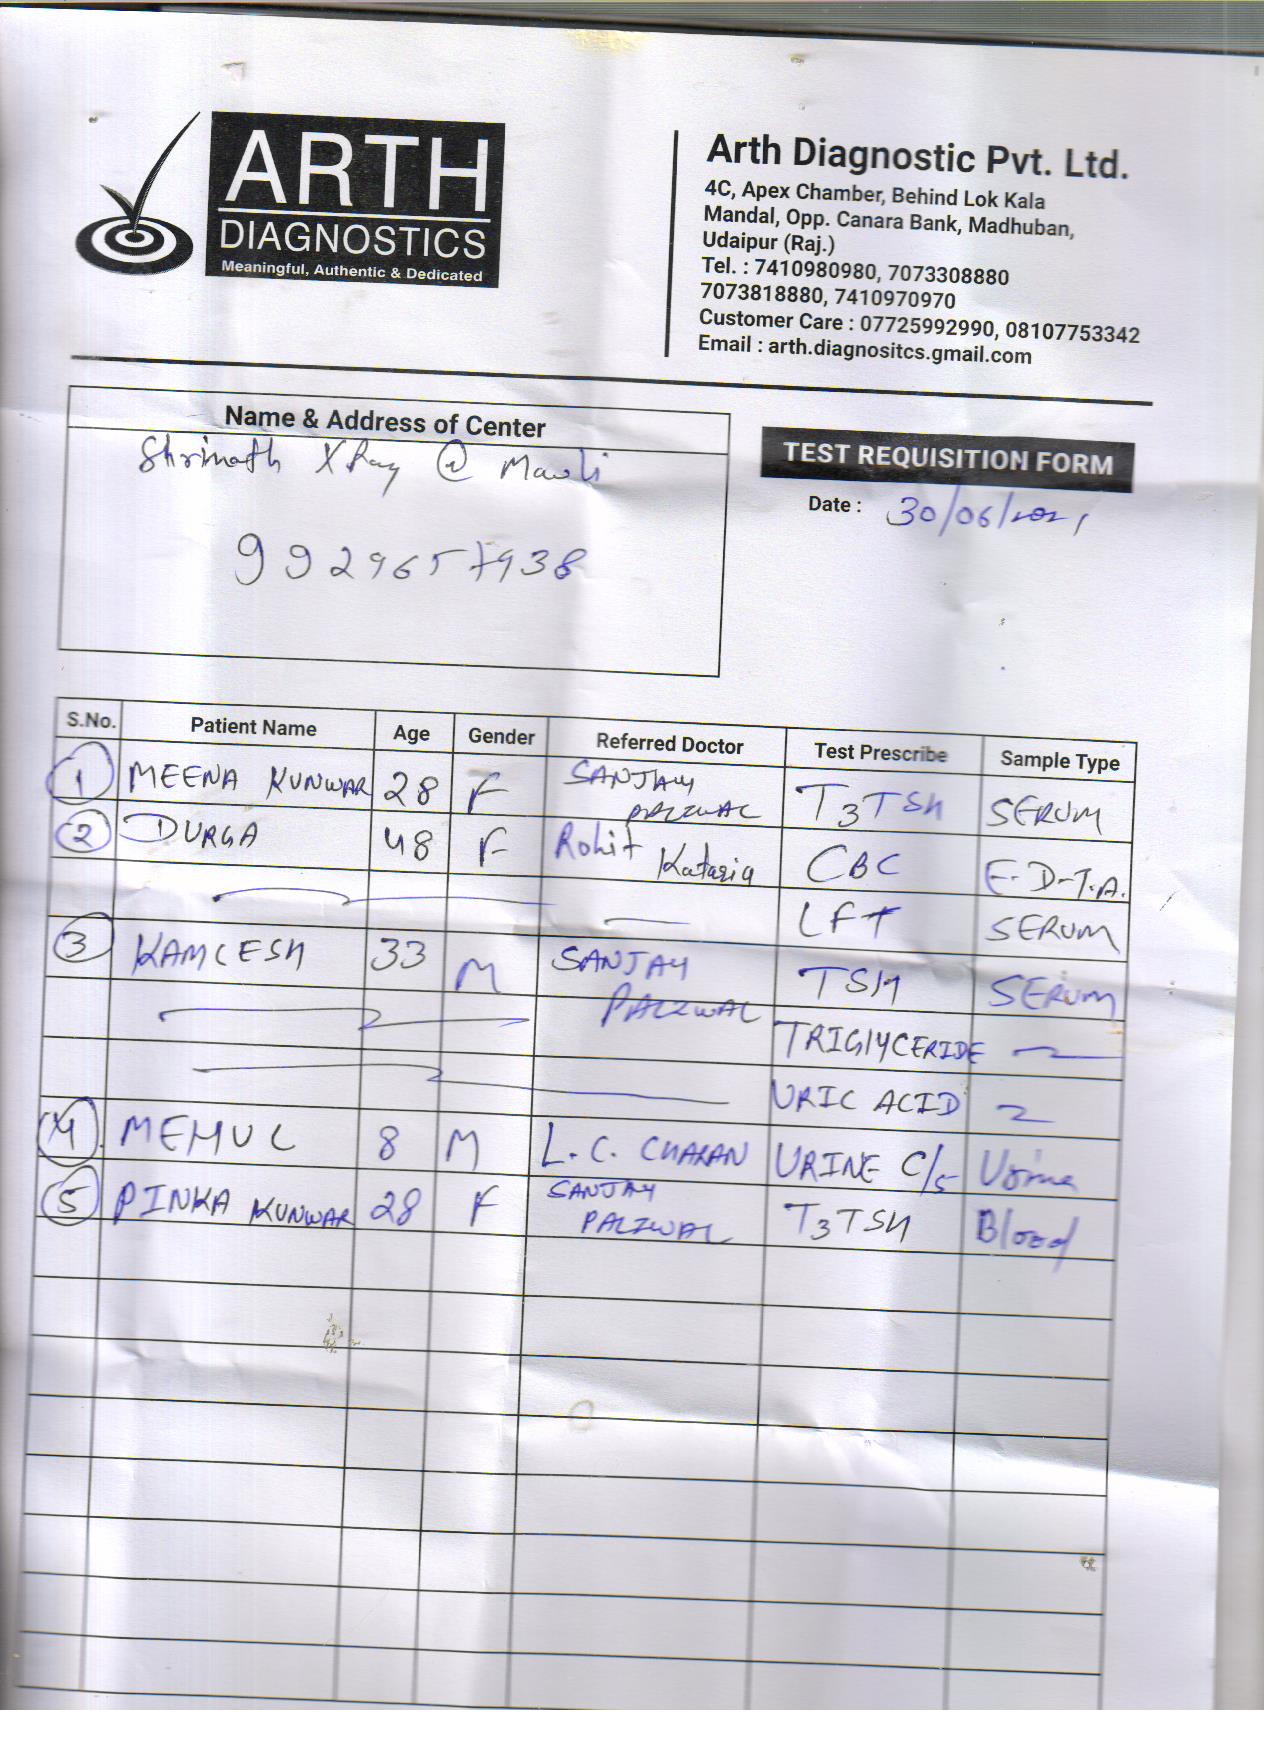 ARTH
DIAGNOSTICS
Meaningful, Authentic & Dedicated
Arth Diagnostic Pvt. Ltd.
4C, Apex Chamber, Behind Lok Kala
Mandal, Opp. Canara Bank, Madhuban,
Udaipur (Raj.)
Tel. : 7410980980, 7073308880
7073818880, 7410970970
Customer Care : 07725992990, 08107753342
Email : arth.diagnositcs.gmail.com
Name & Address of Center
Shrinath X Ray @ Mavli
9929657938
TEST REQUISITION FORM
Date : 30/06/2021
S.No. Patient Name Age Gender Referred Doctor Test Prescribe Sample Type
1 MEENA KUNWAR 28 F SANJAY PALIWAL T3TSH SERUM
2 DURGA 48 F Rohit Kataria CBC E.D-T.A.
LFT SERUM
3 KAMLESH 33 M SANJAY PALIWAL TSH SERUM
TRIGLYCERIDE
URIC ACID
4 MEHUL 8 M L.C. CHARAN URINE C/S Urine
5 PINKA KUNWAR 28 F SANJAY PALIWAL T3TSH Blood